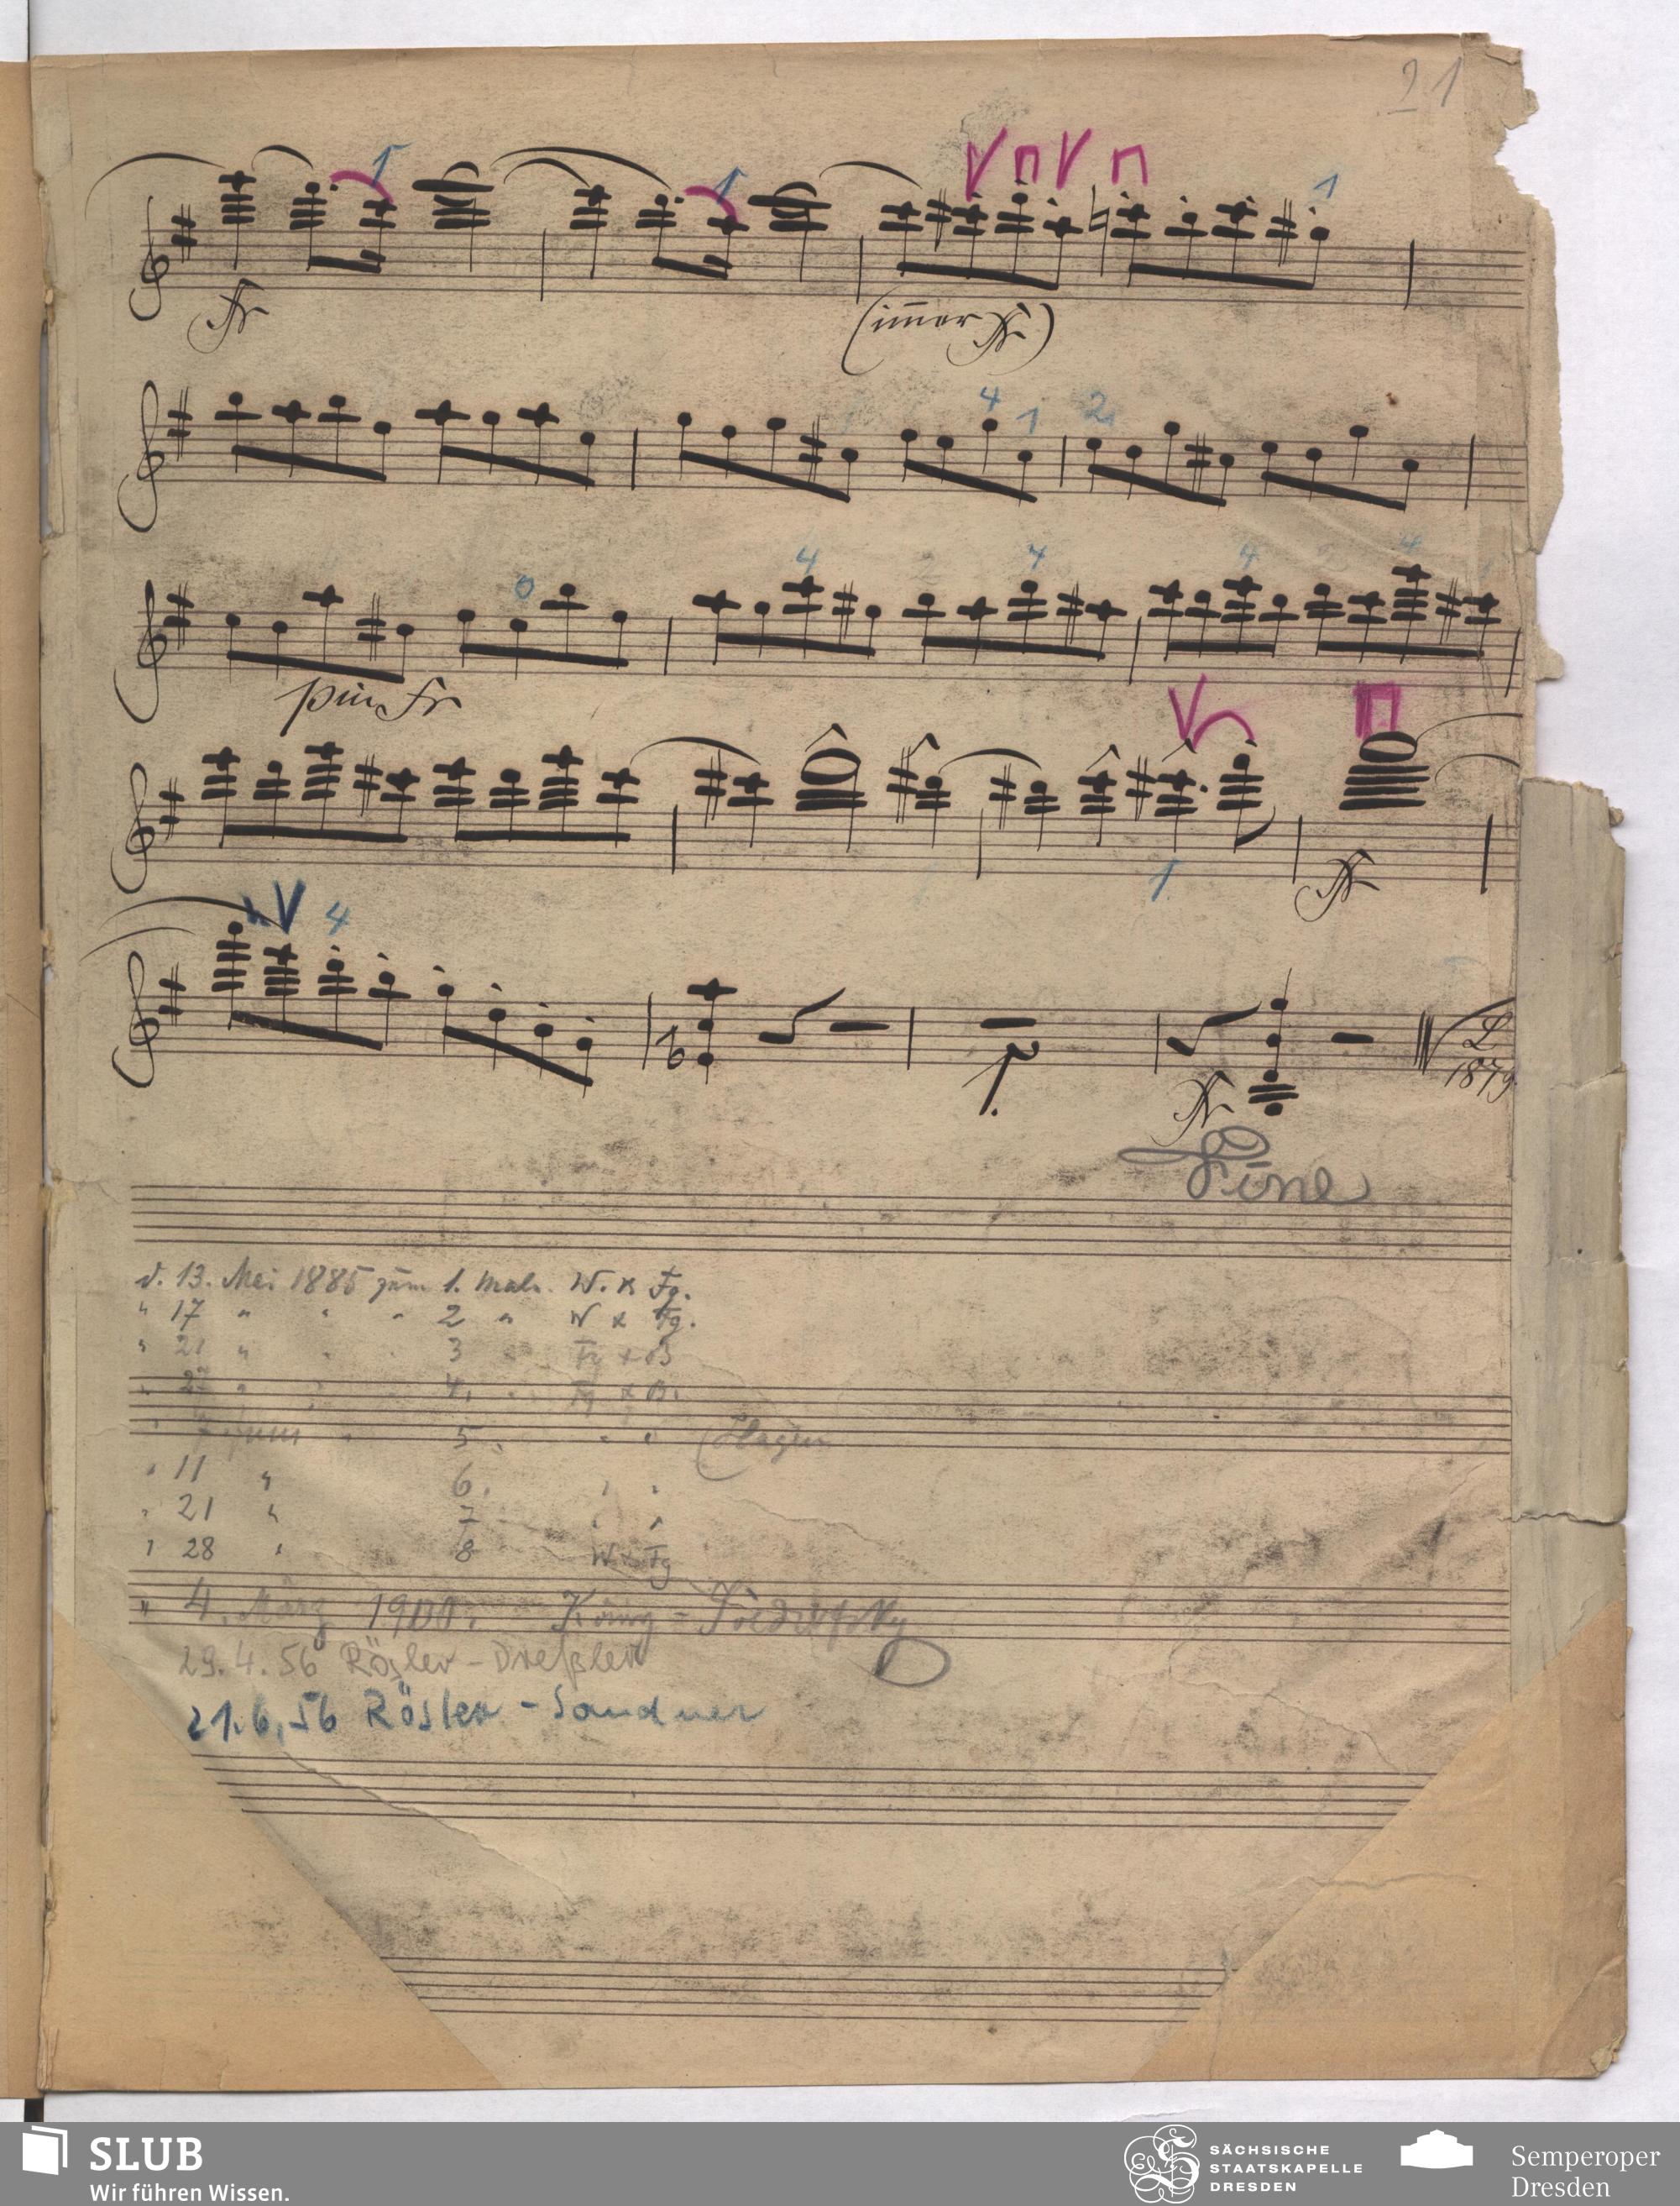 21
1 1 1
ff
(immer ff)
4 1 2
0 4 2 4 4 2 4 1
più ff
1
ff
4
p.
ff
L
1879
Fine
d. 13. Mai 1885 zum 1. Male. W. & Fg.
" 17 " " " 2 " W & Fg.
" 21 " " " 3 " Fg & B
" 27 " " " 4. " Fg & B.
" 7 Juni " 5. " "
" 11 " 6. " "
" 21 " 7 " "
" 28 " 8 W & Fg
" 4. März 1900. König =
29.4.56 Rösler - Dreßler
21.6.56 Rösler - Sandner
SLUB
Wir führen Wissen.
SÄCHSISCHE
STAATSKAPELLE
DRESDEN
Semperoper
Dresden